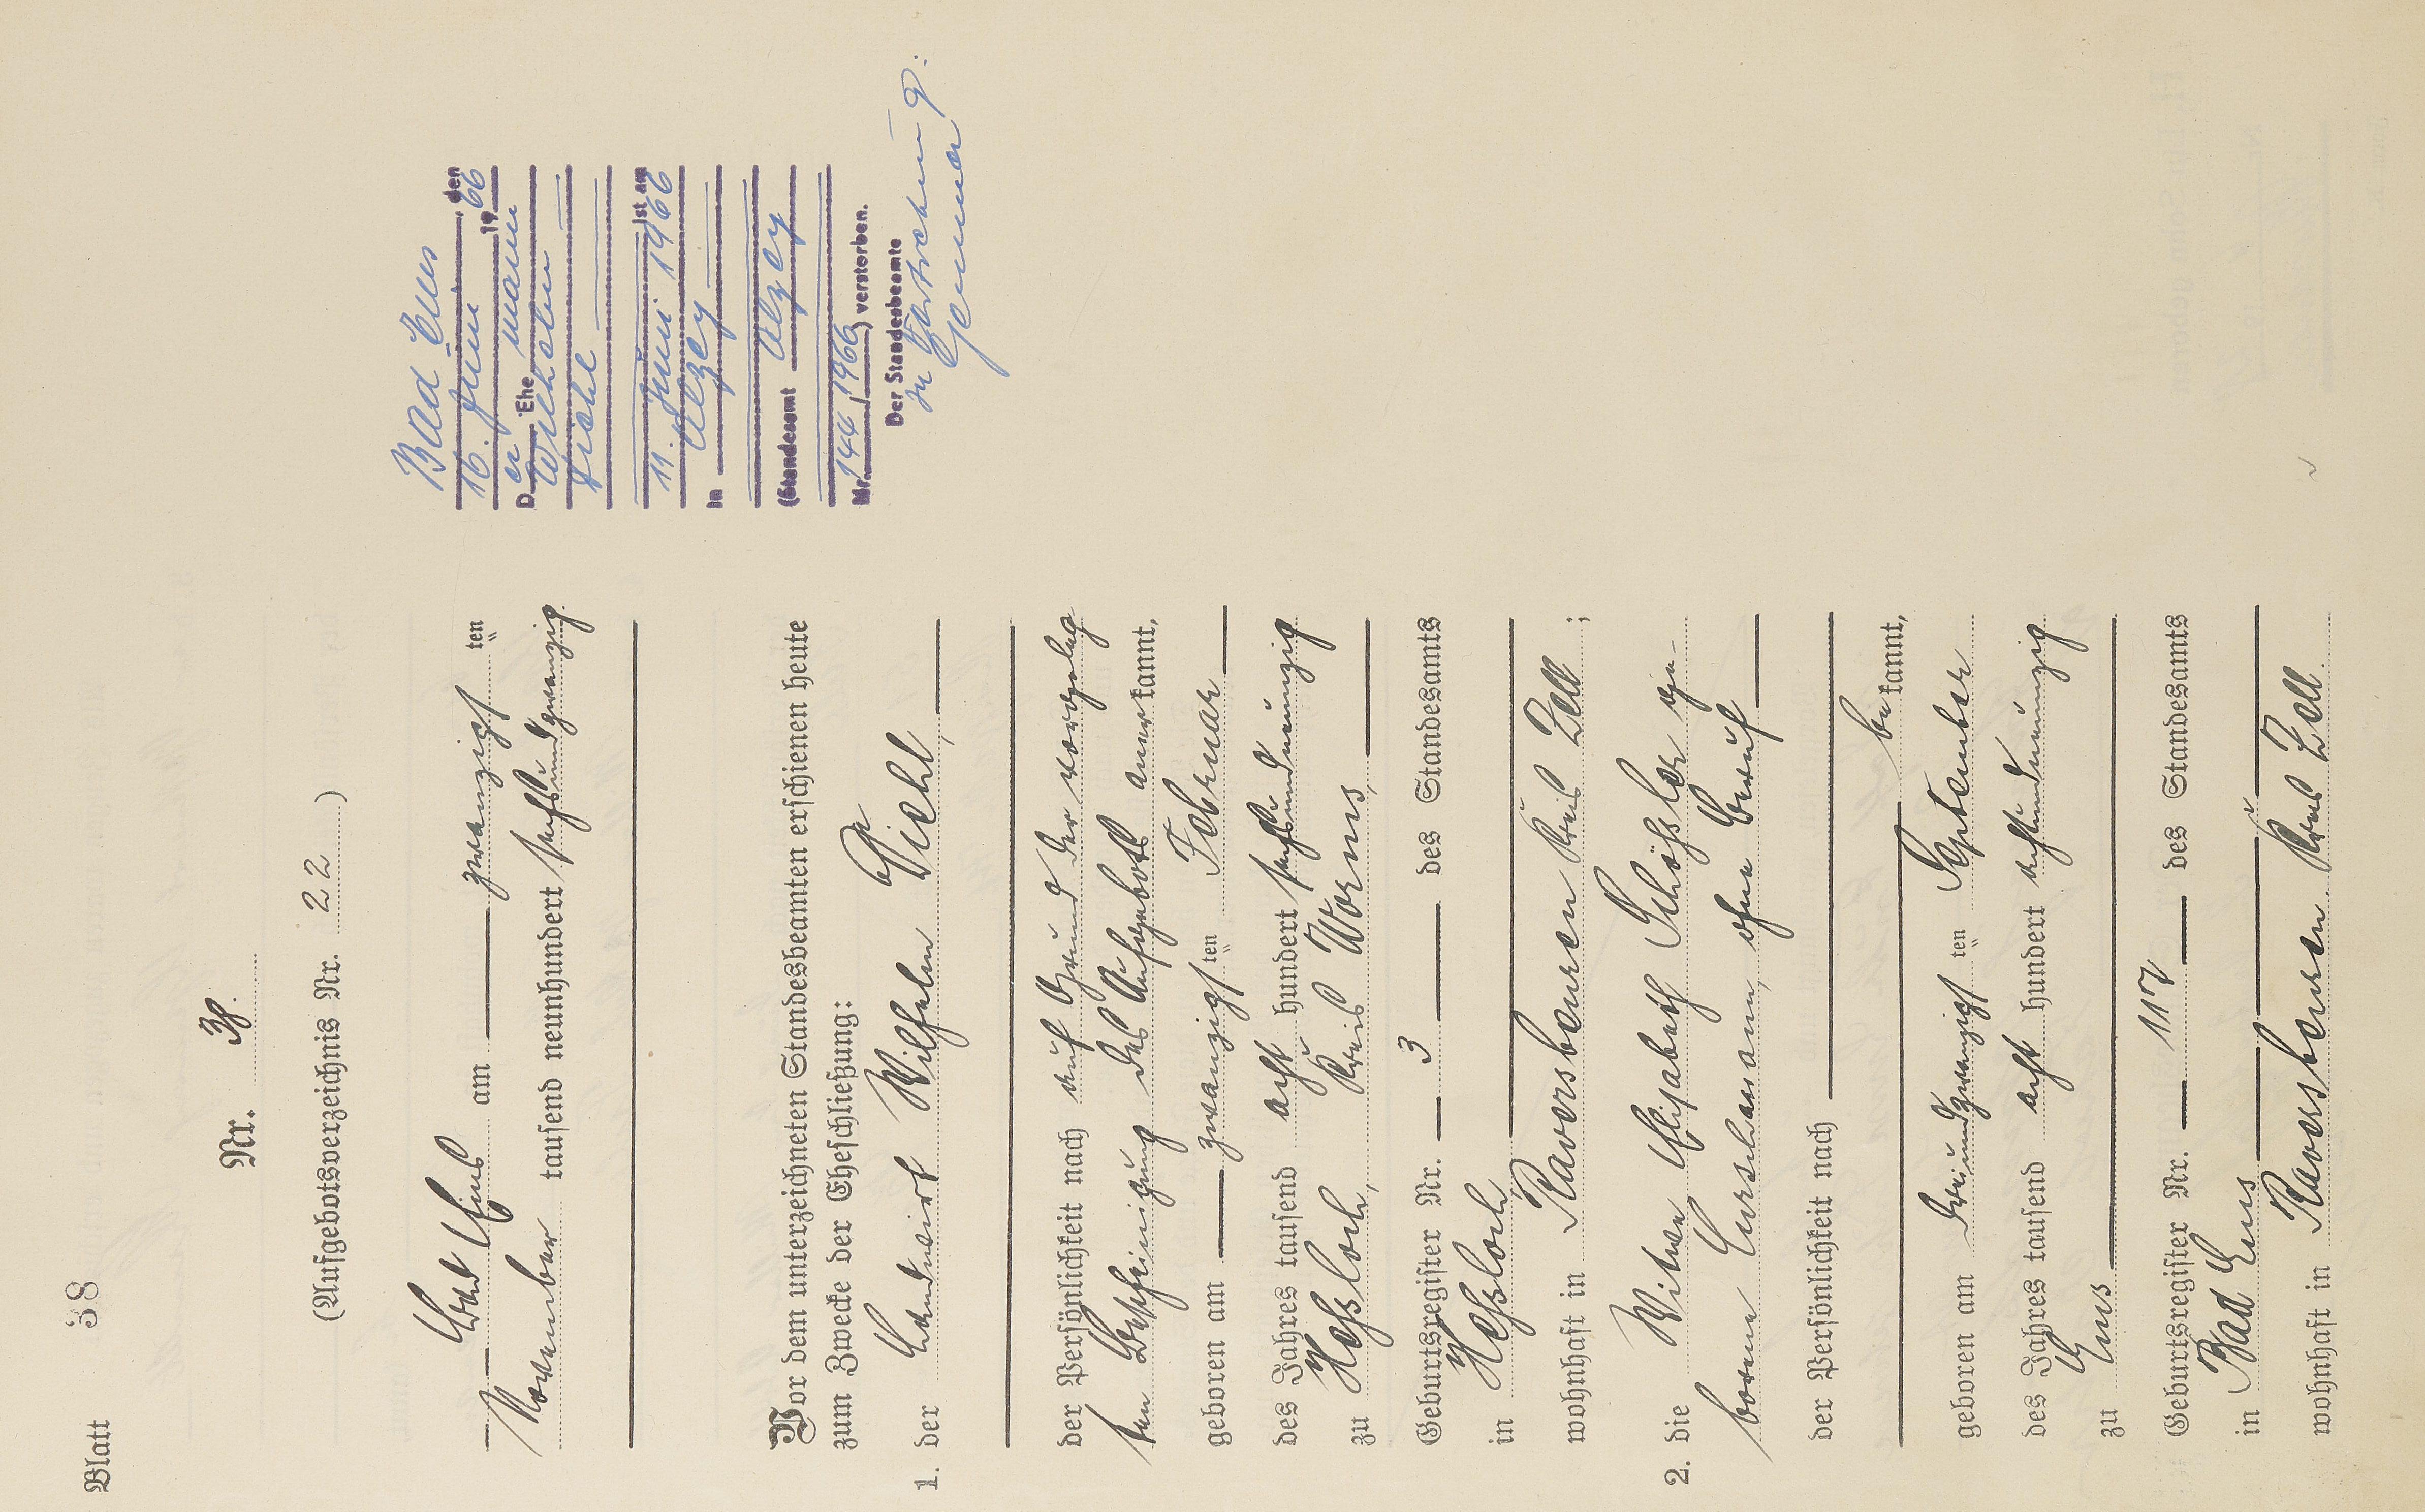 Blatt 38
Nr. 38.
(Aufgebotsverzeichnis Nr. 22)
Bad Ems am zwanzigsten
November tausend neunhundert sechsundzwanzig.
Vor dem unterzeichneten Standesbeamten erschienen heute
zum Zwecke der Eheschließung:
1. der Landwirt Wilhelm Diehl,
der Persönlichkeit nach auf Grund der vorgeleg
ten Bescheinigung des Aufgebots anerkannt,
geboren am zwanzigsten Februar
des Jahres tausend acht hundert sechsundneunzig
zu Heßloch, Kreis Worms,
Geburtsregister Nr. 3 des Standesamts
in Heßloch,
wohnhaft in Kreis Zell;
2. die Witwe Elisabeth ge-
borene ohne Beruf
der Persönlichkeit nach bekannt,
geboren am dreiundzwanzigsten September
des Jahres tausend acht hundert achtundneunzig
zu Ems
Geburtsregister Nr. 117 des Standesamts
in Bad Ems
wohnhaft in Kreis Zell.
Bad Ems, den
16. Juni 1966
Der Ehemann
Wilhelm
Diehl
ist am
11. Juni 1966
In Alzey
(Standesamt Alzey
Nr. 144/1966) verstorben.
Der Standesbeamte
In Vertretung: